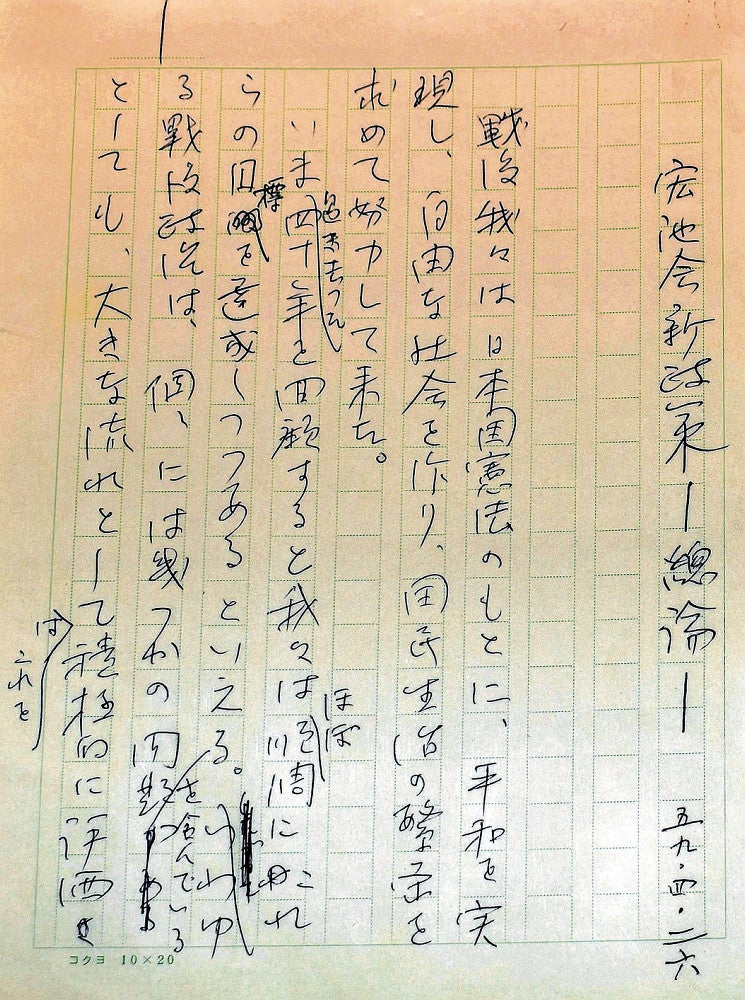 宏池会新政策ー總論ー 五九・四・二六
戦後我々は日本国憲法のもとに、平和を実
現し、自由な社会を作り、国民生活の繁栄を
求めて努力して来た。
過ぎ去った
ほぼ
いま四十年を回顧すると我々は順調にこれ
標
らの目を達成しつつあるといえる。いわゆ
を含んでいる
る戦後政治は、個々には幾つかの問題
としても、大きな流れとして積極的に評価
は
これを
コクヨ 10×20